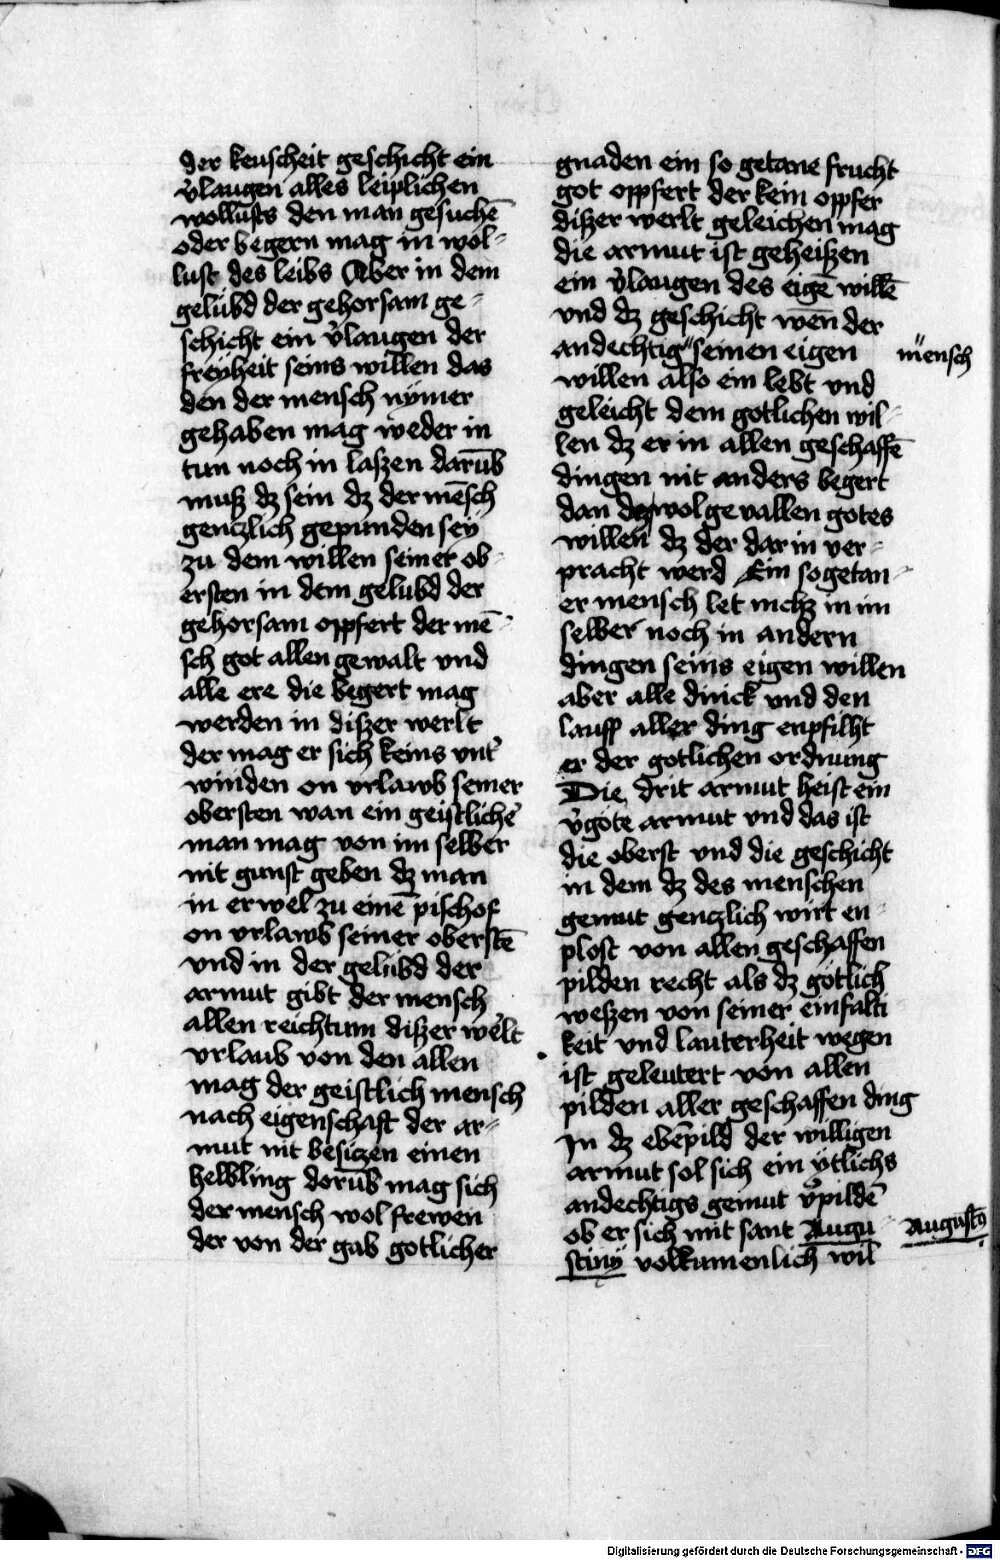 der keuscheit geschicht ein
v̉laugen alles leiplichen
wollusts den man gesuchē
oder begern mag in wol-
lust des leibs Aber in dem
gelübd der gehorsam ge-
schicht ein v̉laugen der
freÿheit seins willen das
den der mensch nÿmer
gehaben mag weder in
tun noch in laszen darūb
musz dz sein dz der mēsch
genczlich gepunden seÿ
zu dem willen seiner ob-
ersten in dem gelubd der
gehorsam oppfert der mē-
sch got allen gewalt vnd
alle ere die begert mag
werden in diszer werlt
der mag er sich keins vnt̉
winden on vrlawb seiner
obersten wan ein geistlich̉e
man mag von im selber
nit gunst geben dz man
in erwel zu einē pischof
on vrlawb seiner oberstē
vnd in der gelübd der
armut gibt der mensch
allen reichtum diszer welt
vrlaub von den allen
mag der geistlich mensch
nach eigenschaft der ar-
mut nit besiczen einen
helbling dorūb mag sich
der mensch wol frewen
der von der gab gotlicher
gnaden ein so getane frucht
got oppfert der kein oppfer
diszer werlt geleichen mag
die armut ist geheiszen
ein v̉laugen des eigē willē
vnd dz geschicht wēn der
andechtig" seinen eigen
"mensch
willen also ein lebt vnd
geleicht dem gotlichen wil-
len dz er in allen geschaffē
dingen nit anders begert
dan dez wolgevallen gotes
willen dz der dar in ver-
pracht werd Ein sogetan-
er mensch let nichz in im
selber noch in andern
dingen seins eigen willen
aber alle dinck vnd den
lauff aller ding enpfilht
er der gotlichen ordnung
Die drit armut heist ein
v̉gote armut vnd das ist
die oberst vnd die geschicht
in dem dz des menschen
gemut genczlich wirt en-
plost von allen geschaffen
pilden recht als dz götlich
weszen von seiner einfalti
keit vnd lauterheit wegen
ist geleutert von allen
pilden aller geschaffen ding
In dz ebēpild der willigen
armut sol sich ein ÿtlichs
andechtigs gemut v̉pildē
ob er sich mit sant Augu-
Augustꝰ
stinÿ volkumenlich wil